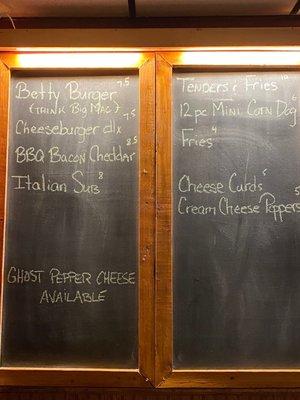 Betty Burger 7.5
(THINK BIG MAC)
Cheeseburger dlx 7.5
BBQ Bacon Cheddar 8.5
Italian Sub 8
GHOST PEPPER CHEESE
AVAILABLE
TENDERS & FRIES 10
12 pc MINI CORN DOG 6
FRIES 4
Cheese Curds 5
Cream Cheese Poppers 5